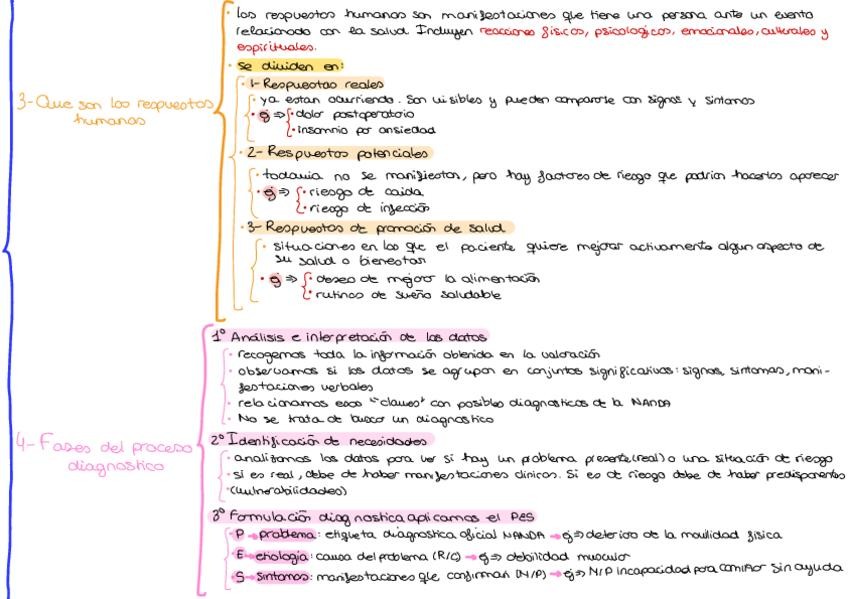 · Las respuestas humanas son manifestaciones que tiene una persona ante un evento
relacionado con la salud. Incluyen reacciones físicas, psicologicas, emocionales, culturales y
espirituales.
· Se dividen en:
· 1- Respuestas reales
· ya estan ocurriendo. Son visibles y pueden compararse con signos y sintomas
3- Que son las respuestas
humanas
· ej ⇒ · dolor postoperatorio
· insomnio por ansiedad
· 2- Respuestas potenciales
· todavia no se manifiestan, pero hay factores de riesgo que podrian hacerlos aparecer
· ej ⇒ · riesgo de caida
· riesgo de infección
· 3- Respuestas de promoción de salud
· situaciones en las que el paciente quiere mejorar activamente algun aspecto de
su salud o bienestar
· ej ⇒ · deseo de mejorar la alimentación
· rutinas de sueño saludable
1º Análisis e interpretación de los datos
· recogemos toda la información obtenida en la valoración
· observamos si los datos se agrupan en conjuntos significativos: signos, sintomas, mani-
festaciones verbales
· relacionamos esas "claves" con posibles diagnosticos de la NANDA
· No se trata de buscar un diagnostico
4- Fases del proceso
diagnostico
2º Identificación de necesidades
· analizamos los datos para ver si hay un problema presente (real) o una situación de riesgo
· si es real, debe de haber manifestaciones clinicas. Si es de riesgo debe de haber predisponentes
(vulnerabilidades)
3º Formulación diagnostica aplicamos el PES
P → problema: etiqueta diagnostica oficial NANDA → ej ⇒ deterioro de la movilidad fisica
E → etiologia: causa del problema (R/C) → ej ⇒ debilidad muscular
S → sintomas: manifestaciones que confirman (M/P) → ej ⇒ M/P incapacidad para caminar sin ayuda